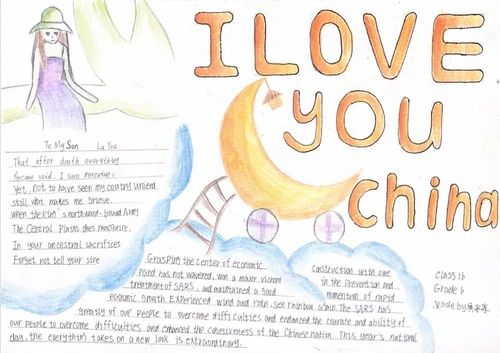 I LOVE
YOU
China
To My Son Lu You
That after death everything
Became void, I sure perceive,
Yet, not to have seen my country unified
still what makes me grieve
when the King's northward-bound Army
The Central Plains does reacquire.
In your ancestral sacrifices
Forget not tell your sire
Grasping the center of economic
hand has not wavered, won a major victory
treatment of SARS, and maintained a good
economic growth. Experienced wind and rain, see rainbow again. The SARS has
Construction with one
in the prevention and
momentum of rapid
greatly of our people to overcome difficulties and endanced the courage and ability of
our people to overcome difficulties and enhanced the cohesiveness of the Chinese nation. This year's national
day, the everything takes on a new look is extraordinary.
Class 16
Grade 6
Made by